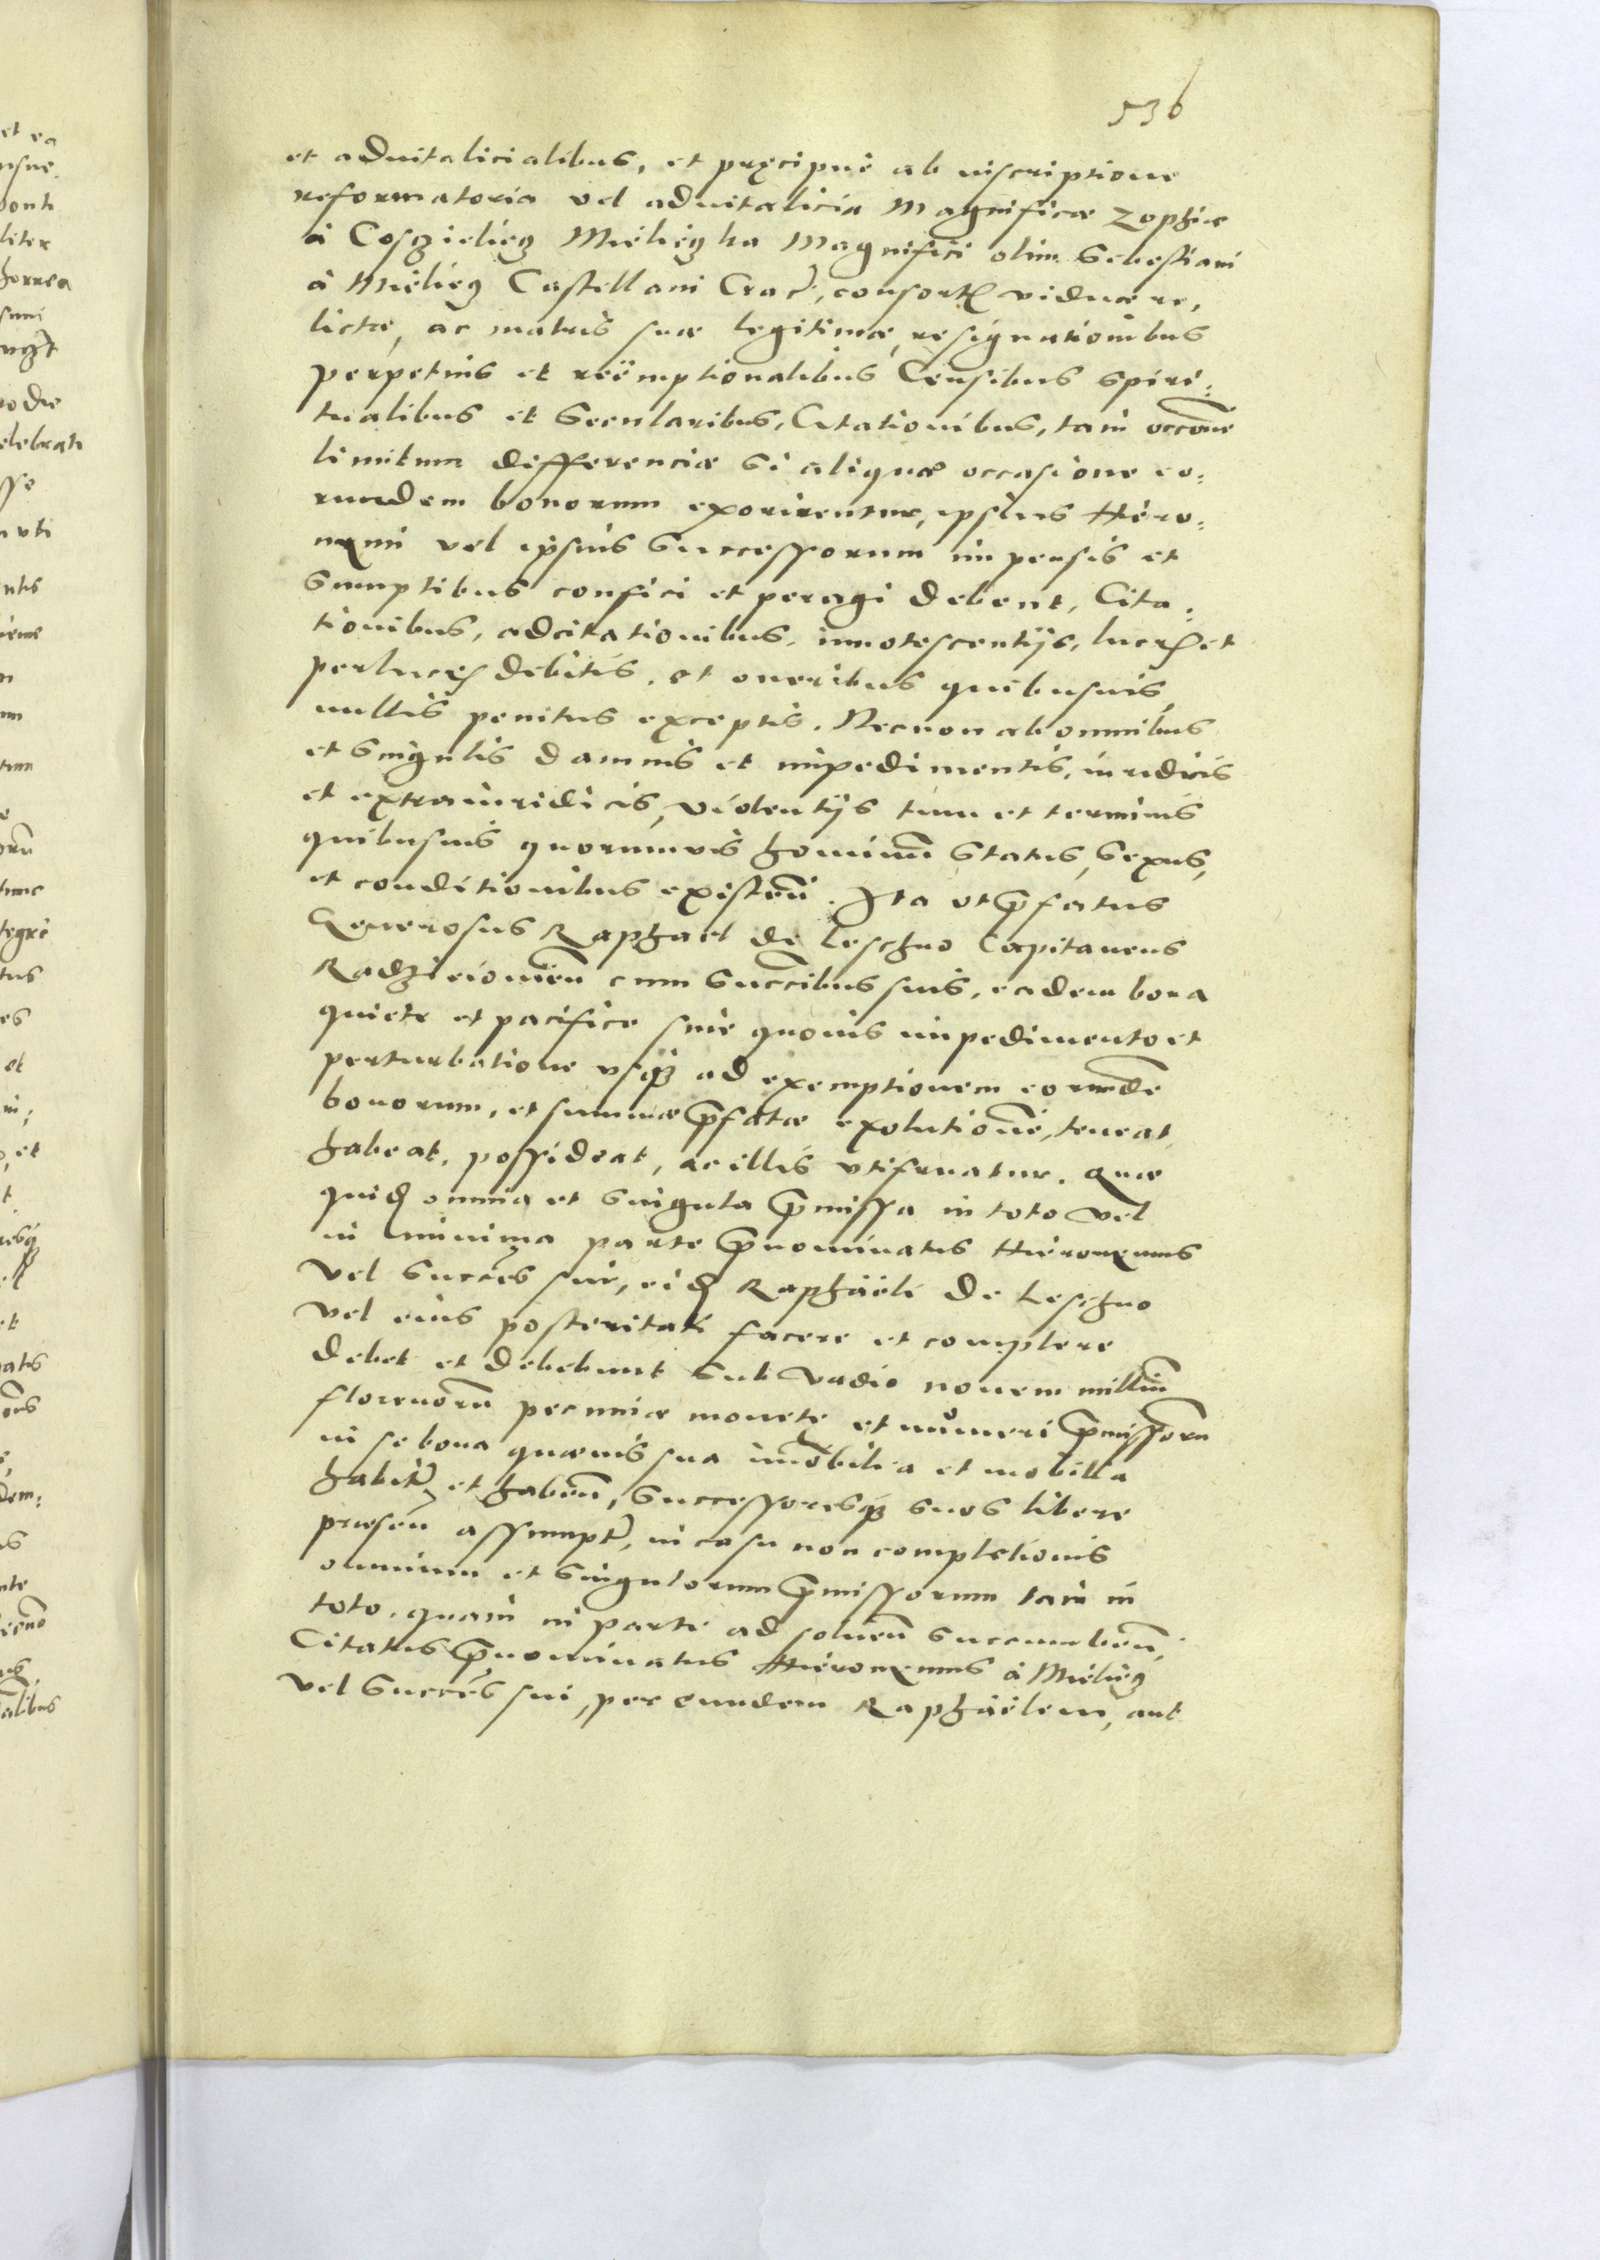 536
et aduitalicialibus, et pręcipuè ab inscriptione
reformatoria vel aduitalicia Magnificæ Zophiæ
à Cosczieliecz Mieliecz ka Magnifici olim Sebestiani
à Mieliecz Castellani Crac̃, consort viduæ re,
lictæ, ac matris suæ legitimæ, resignationibus
perpetuis et reëmptionalibus Censibus spiri:
tualibus et Secularibus, Citationibus, tam occõne
limitum differenciæ Si aliquæ occasione eo:
rundem bonorum exorirentur, ipsius Hiero:
nymi vel ipsius Successorum impensis et
Sumptibus confici et peragi debent, Cita:
tionibus, adcitationibus, innotescentijs, lucr et
perlucr debitis, et oneribus quibusuis,
nullis penitus exceptis. Necnon ab omnibus
et Singulis damnis et impedimentis, iuridicis
et extraiuridicis, violentijs tum et terminis
quibusuis quorumuis hominũ Status, Sexus,
et conditionibus existeñ. Ita vt p̃fatus
Generosus Raphael de Leschno Capitaneus
Radzieiouieñ cum Succc̃ibus suis, eadem bona
quiete et pacifice sine quouis impedimento et
perturbatione vsq; ad exemptionem eorundẽ
bonorum, et summæ p̃fatæ exolutionẽ, teneat,
habeat, possideat, ac illis vtifruatur. Quæ
quid omnia et Singula p̃missa in toto vel
in minima parte p̃nominatus Hieronymus
vel Succes sui, eid Raphaëli de Leschno
vel eius posteritati facere et complere
debet et debebunt Sub vadio nouem milliũ
florenorũ pecuniæ monetę et numeri p̃missorũ
in se bona quæuis sua im̃obilia et mobilia
habit̃ et habeñ, Successoresq; suos libere
præseñ assumpt̃, in casu non completionis
omnium et Singulorum p̃missorum tam in
toto, quam in parte ad solueñ Succumbeñ,
Citatus p̃nominatus Hieronymus à Mieliecz
vel Succes sui, per eundem Raphaëlem, aut